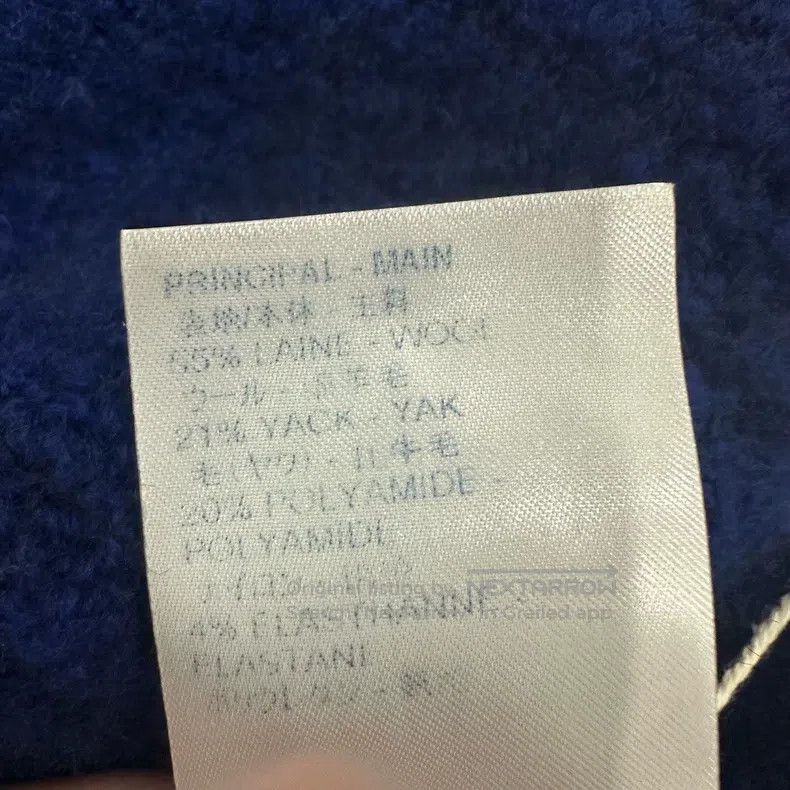 PRINCIPAL - MAIN
表地/本体 - 主料
55% LAINE - WOOL
ウール - 羊毛
21% YACK - YAK
毛(ヤク) - 牛毛
20% POLYAMIDE -
POLYAMIDE
ナイロン
Original listing by NEXTARROW
in Grailed app
4% ELASTHANNE
ELASTANE
ポリウレタン -